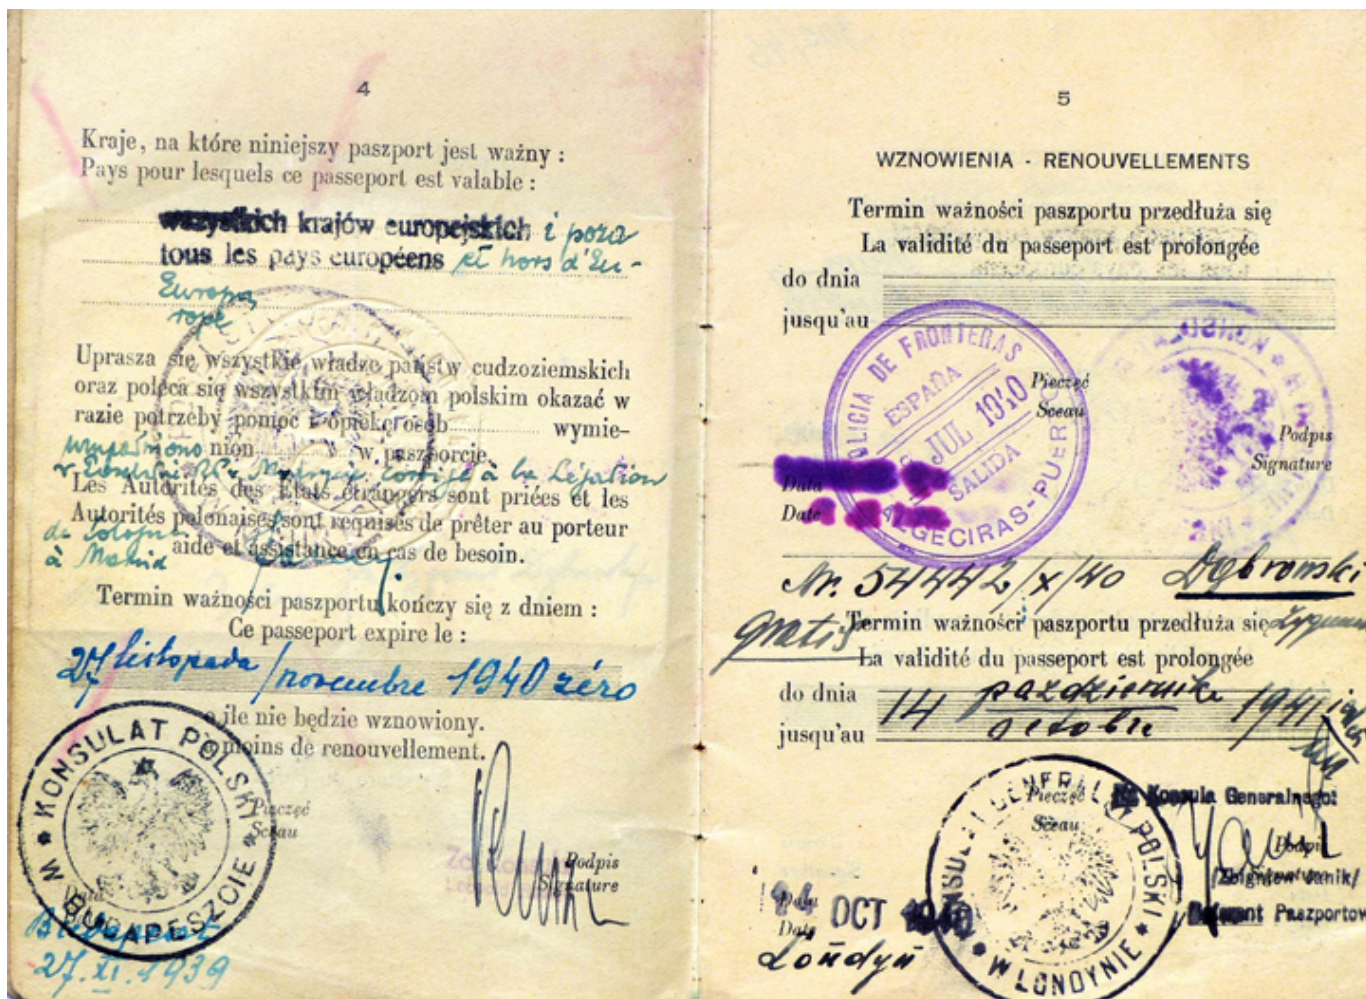 4
Kraje, na które niniejszy paszport jest ważny :
Pays pour lesquels ce passeport est valable :
wszystkich krajów europejskich i poza
tous les pays européens et hors d'Eu-
Europą
rope
Uprasza się wszystkie władze państw cudzoziemskich
oraz poleca się wszystkim władzom polskim okazać w
razie potrzeby pomoc i opiekę osob wymie-
nion w paszporcie.
à la Légation
Les Autorités des Etats étrangers sont priées et les
Autorités polonaises sont requises de prêter au porteur
de Pologne
aide et assistance en cas de besoin.
à Madrid
Termin ważności paszportu kończy się z dniem :
Ce passeport expire le :
27 listopada / novembre 1940 zéro
o ile nie będzie wznowiony.
à moins de renouvellement.
KONSULAT POLSKI W BUDAPESZCIE
Pieczęć
Sceau
Podpis
Signature
Data
Budapest
27.XI.1939
5
WZNOWIENIA - RENOUVELLEMENTS
Termin ważności paszportu przedłuża się
La validité du passeport est prolongée
do dnia
jusqu'au
POLICIA DE FRONTERAS
ESPAÑA
JUL 1940
SALIDA
ALGECIRAS-PUERTO
Pieczęć
Sceau
Podpis
Signature
Data
Date
Nr. 54442/X/40 Dąbrowski
Gratis
Termin ważności paszportu przedłuża się
La validité du passeport est prolongée
do dnia
jusqu'au
14 października 1941
octobre
KONSULAT GENERALNY POLSKI W LONDYNIE
Pieczęć
Sceau
Konsula Generalnego:
Podpis
Signature
/Zbigniew Janik/
Referent Paszportow
Data
Date
14 OCT 1940
Londyn